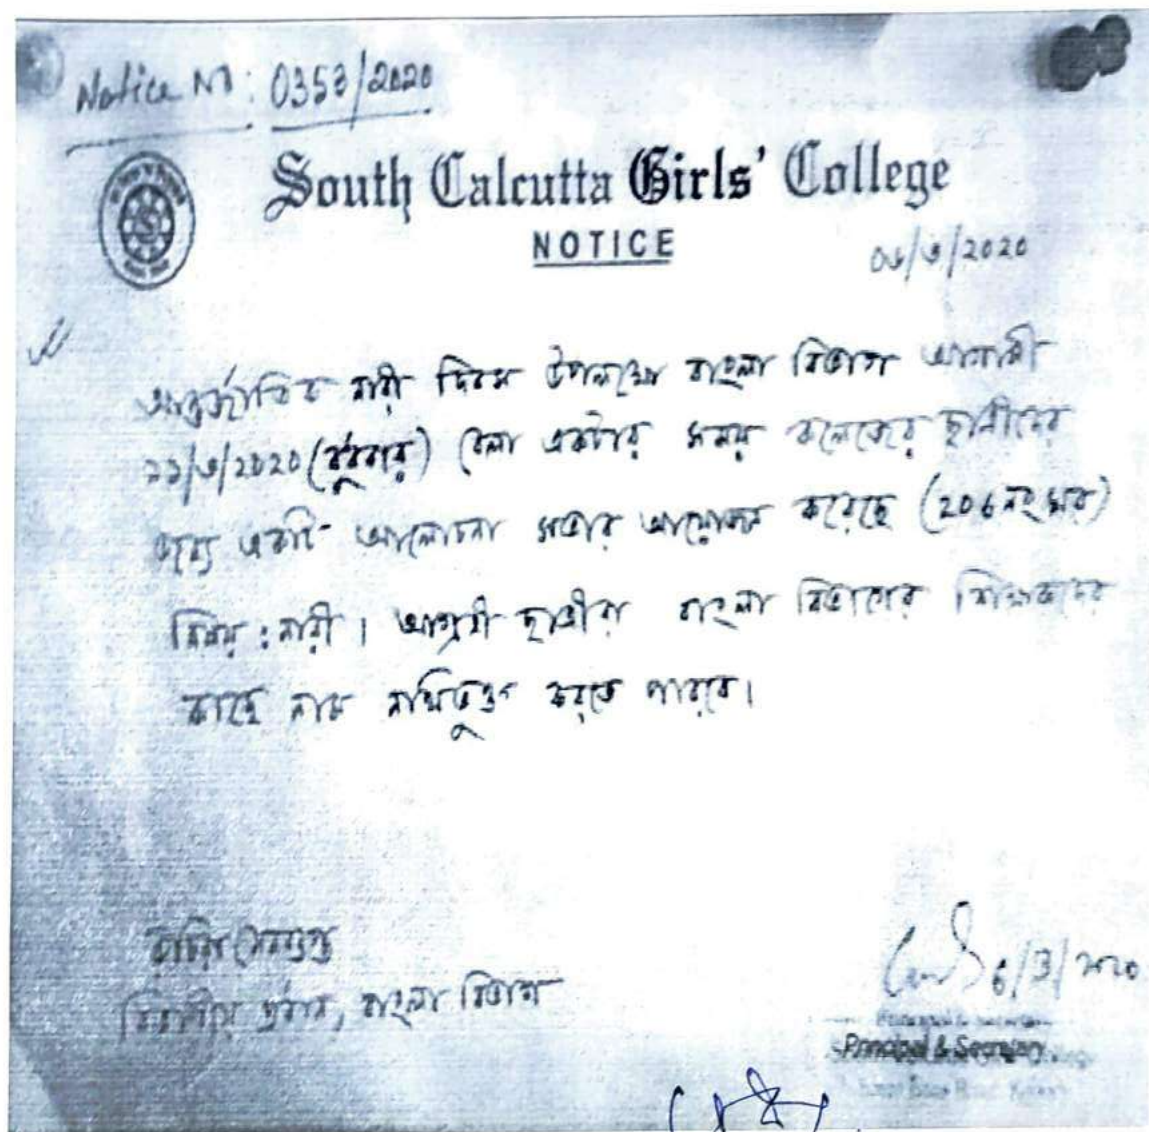 Notice No: 0353/2020
South Calcutta Girls' College
NOTICE
০৬/৩/2020
আন্তর্জাতিক নারী দিবস উপলক্ষ্যে বাংলা বিভাগ আগামী
১১/৩/2020 (বুধবার) বেলা একটার সময় কলেজের ছাত্রীদের
জন্যে একটি আলোচনা সভার আয়োজন করেছে (206 নং ঘর)
বিষয় : নারী। আগ্রহী ছাত্রীরা বাংলা বিভাগের শিক্ষকদের
কাছে নাম নথিভুক্ত করতে পারবে।
সেনগুপ্ত
বিভাগীয় প্রধান, বাংলা বিভাগ
6/3/2020
Principal & Secretary